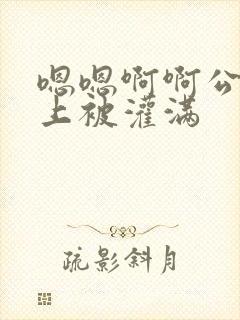 嗯嗯啊啊公
上被灌满
疏影斜月